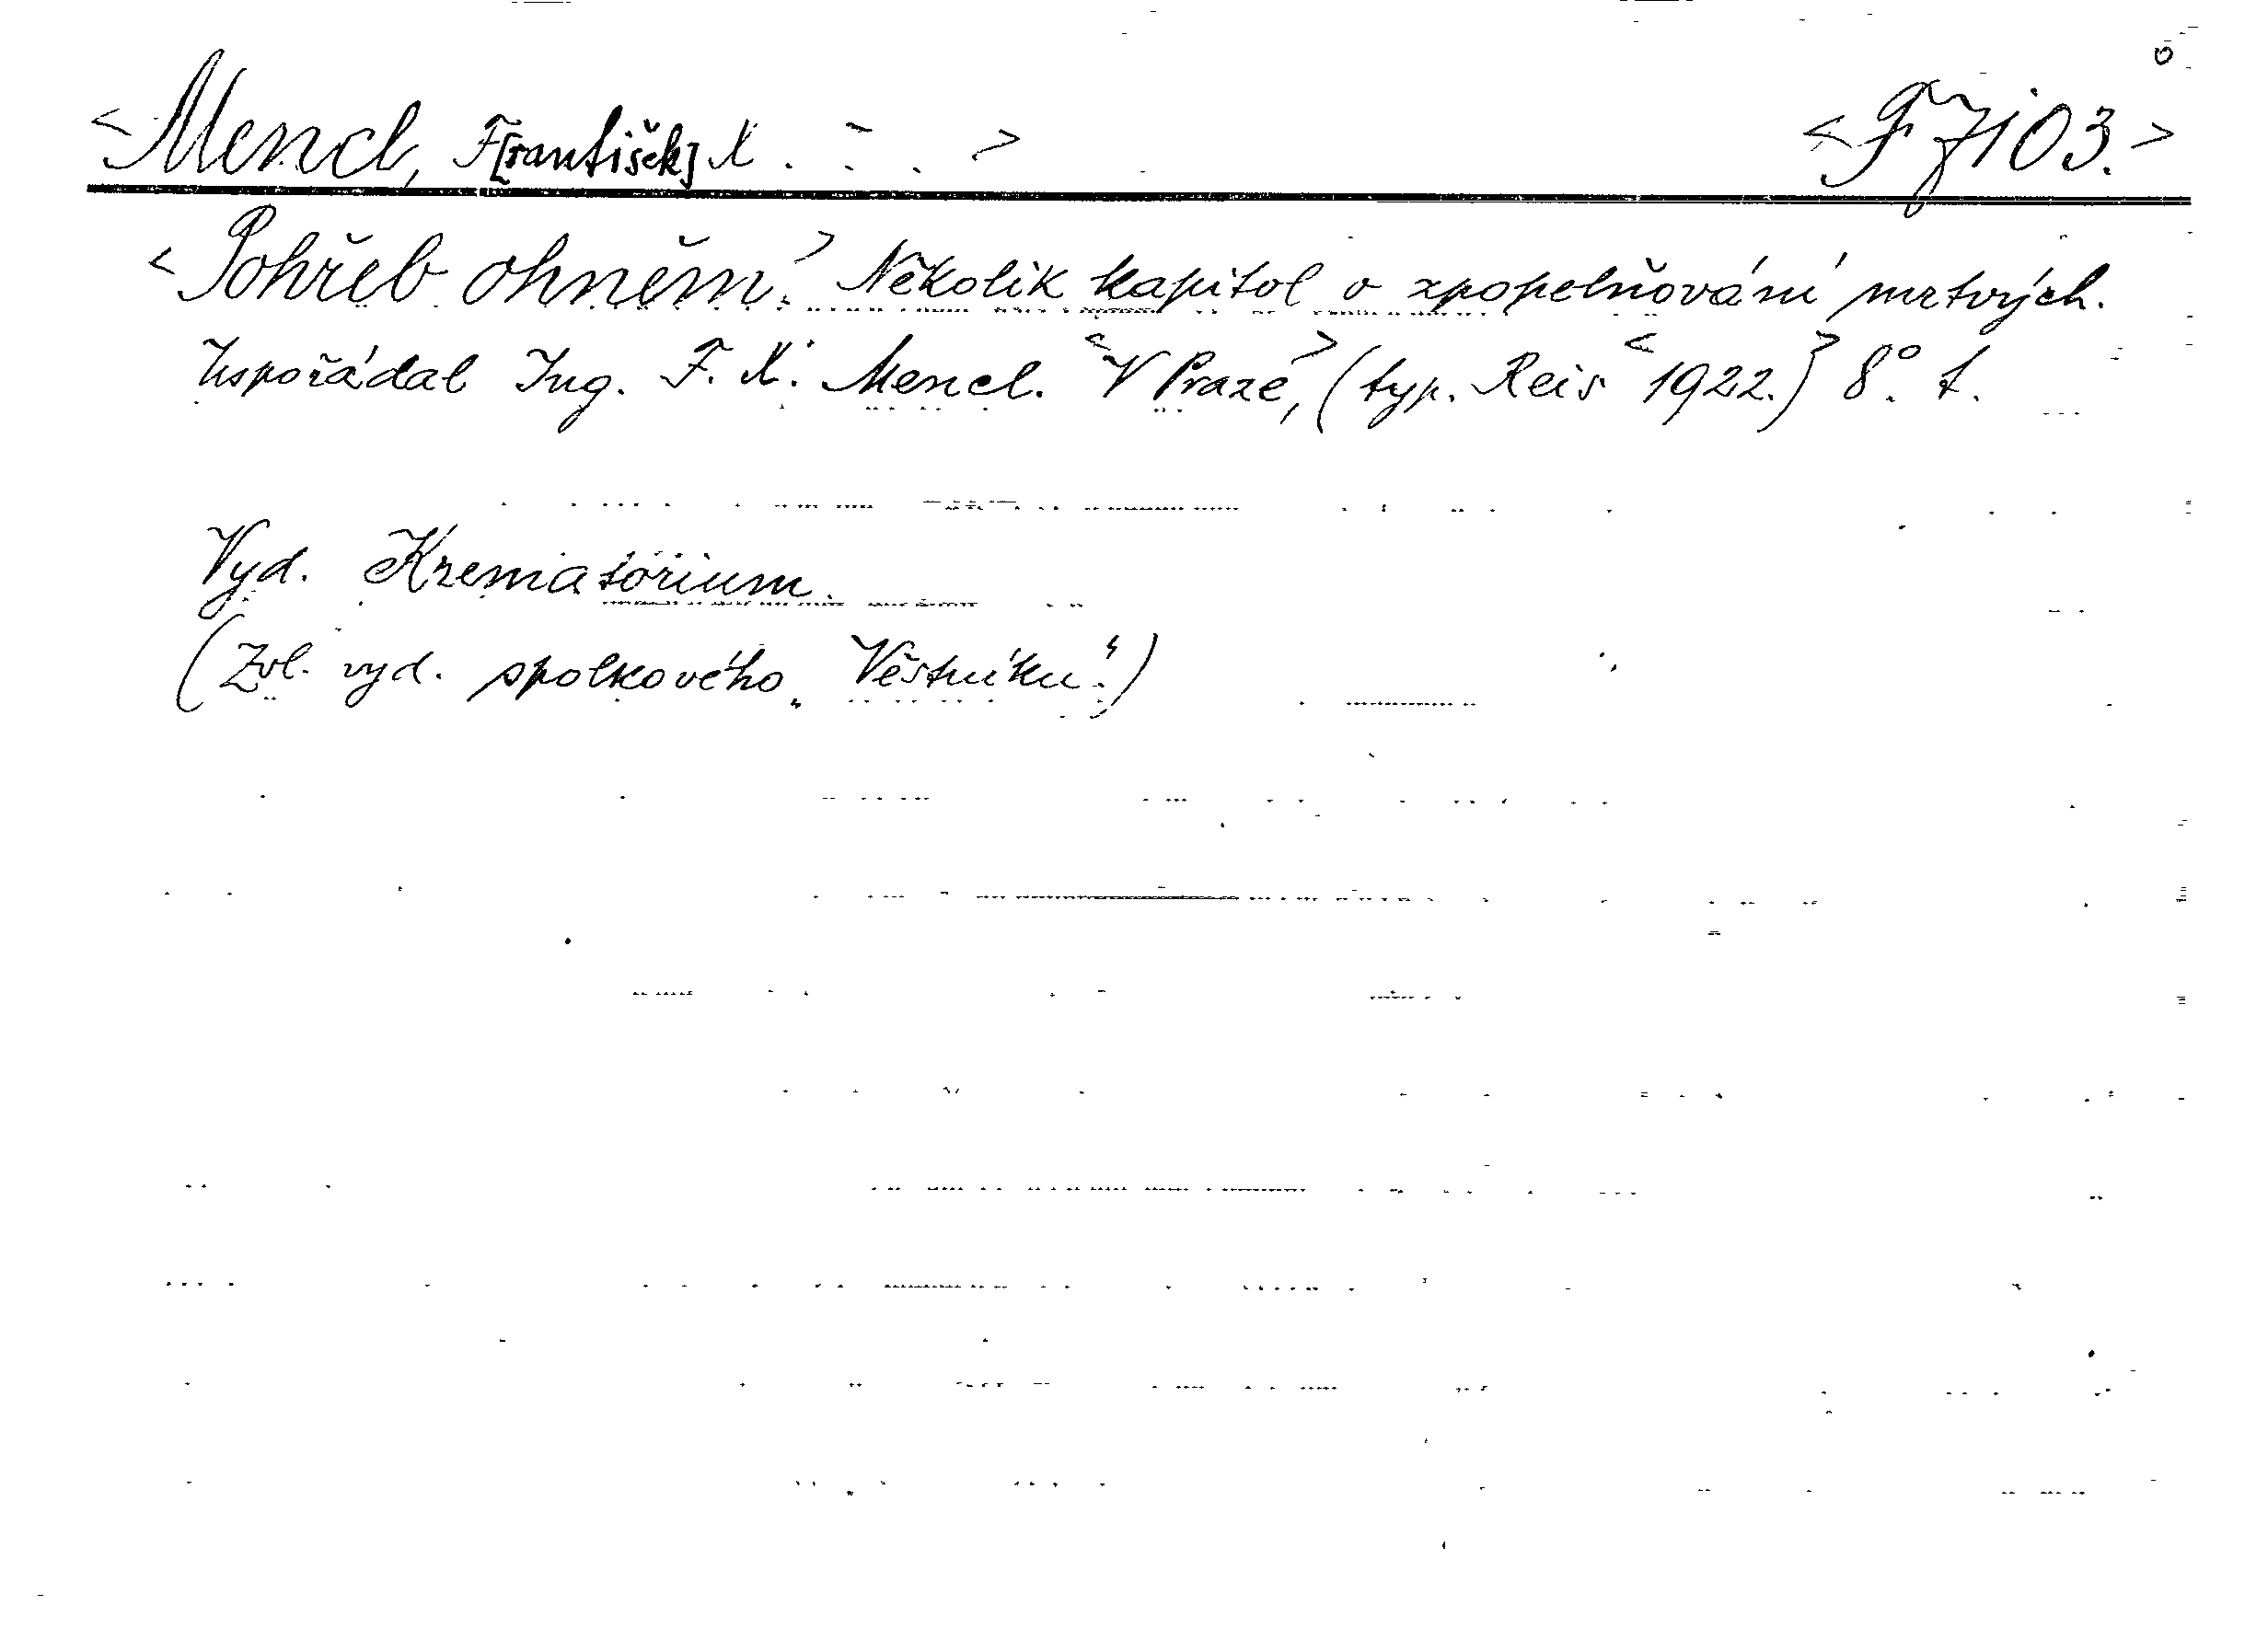 <Mencl, F[rantišek] X . - . > <F 7103.>
<Pohřeb ohněm.> Několik kapitol o zpopelňování mrtvých.
Uspořádal Ing. F. X. Mencl. <V Praze,> (typ. Reis <1922.)> 8°. t.
Vyd. Krematorium.
(Zvl. vyd. spolkového „Věstníku“.)